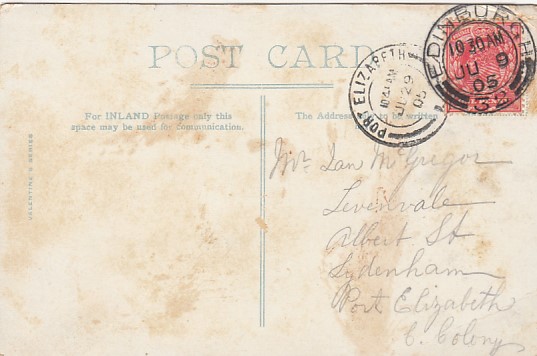 POST CARD
For INLAND Postage only this
space may be used for communication.
The Address to be written
VALENTINE'S SERIES
PORT ELIZABETH
10 AM
JU 29
05
EDINBURGH
10 30 AM
JU 9
05
Mr. Ian McGregor
Levenvale
Albert St
Sydenham
Port Elizabeth
C. Colony